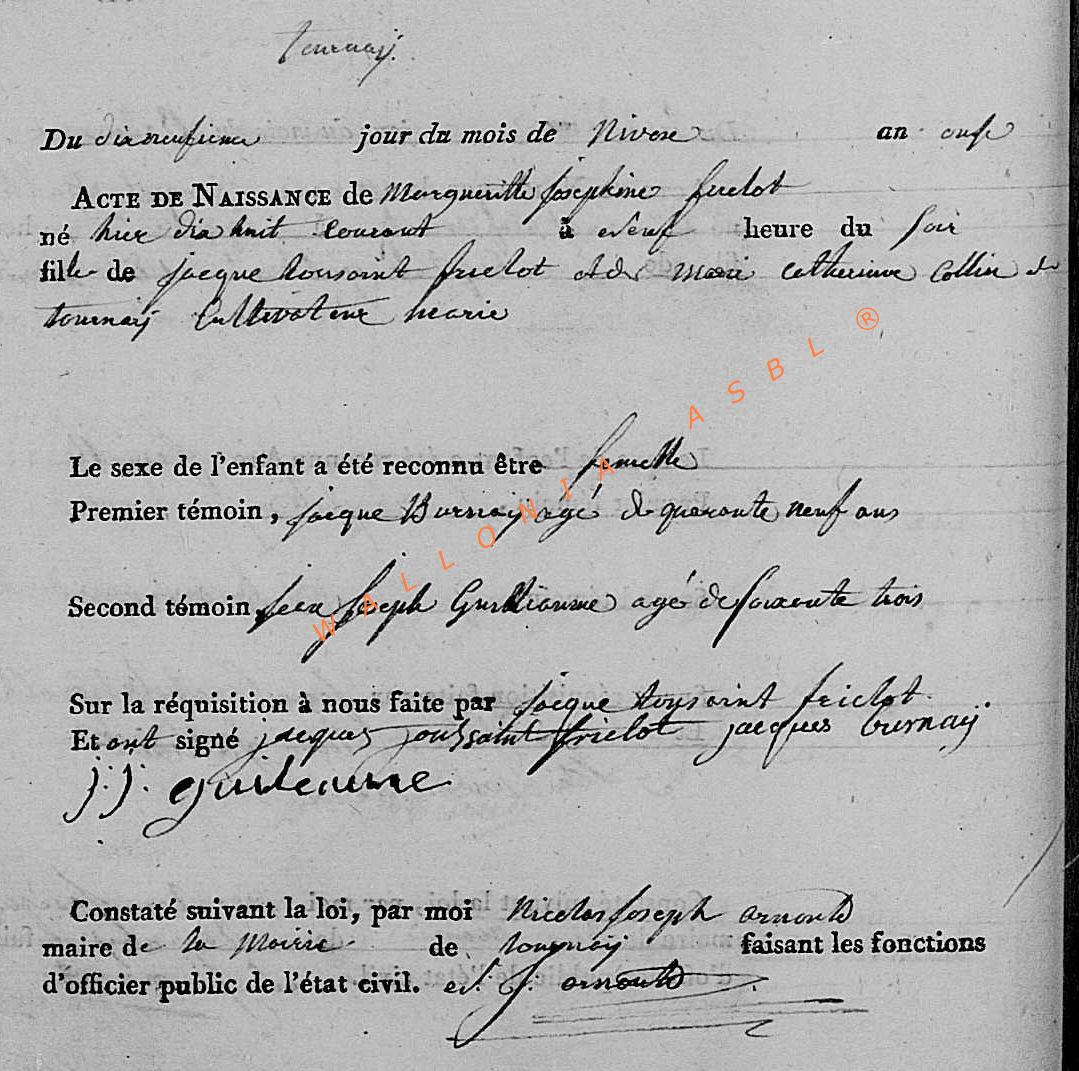 tournay.
Du dixneufieme jour du mois de Nivose an onse
ACTE DE NAISSANCE de Margueritte josephine frielot
né hier dix huit courant à neuf heure du soir
fille de jacque tousaint frielot et de marie catherinne Collin de
tournay Cultivateur marie
Le sexe de l'enfant a été reconnu être femelle
Premier témoin, jacque Burnay agé de quaronte neuf ans
Second témoin, jean joseph Guilliaume agé de soixonte trois
Sur la réquisition à nous faite par jacque tousaint frielot.
Et ont signé jacques toussaint frielot jacques burnay
j: j: guileaume
Constaté suivant la loi, par moi Nicolas joseph arnould
maire de la Mairie de tournay faisant les fonctions
d'officier public de l'état civil. N. J. arnould
WALLONIA ASBL ®